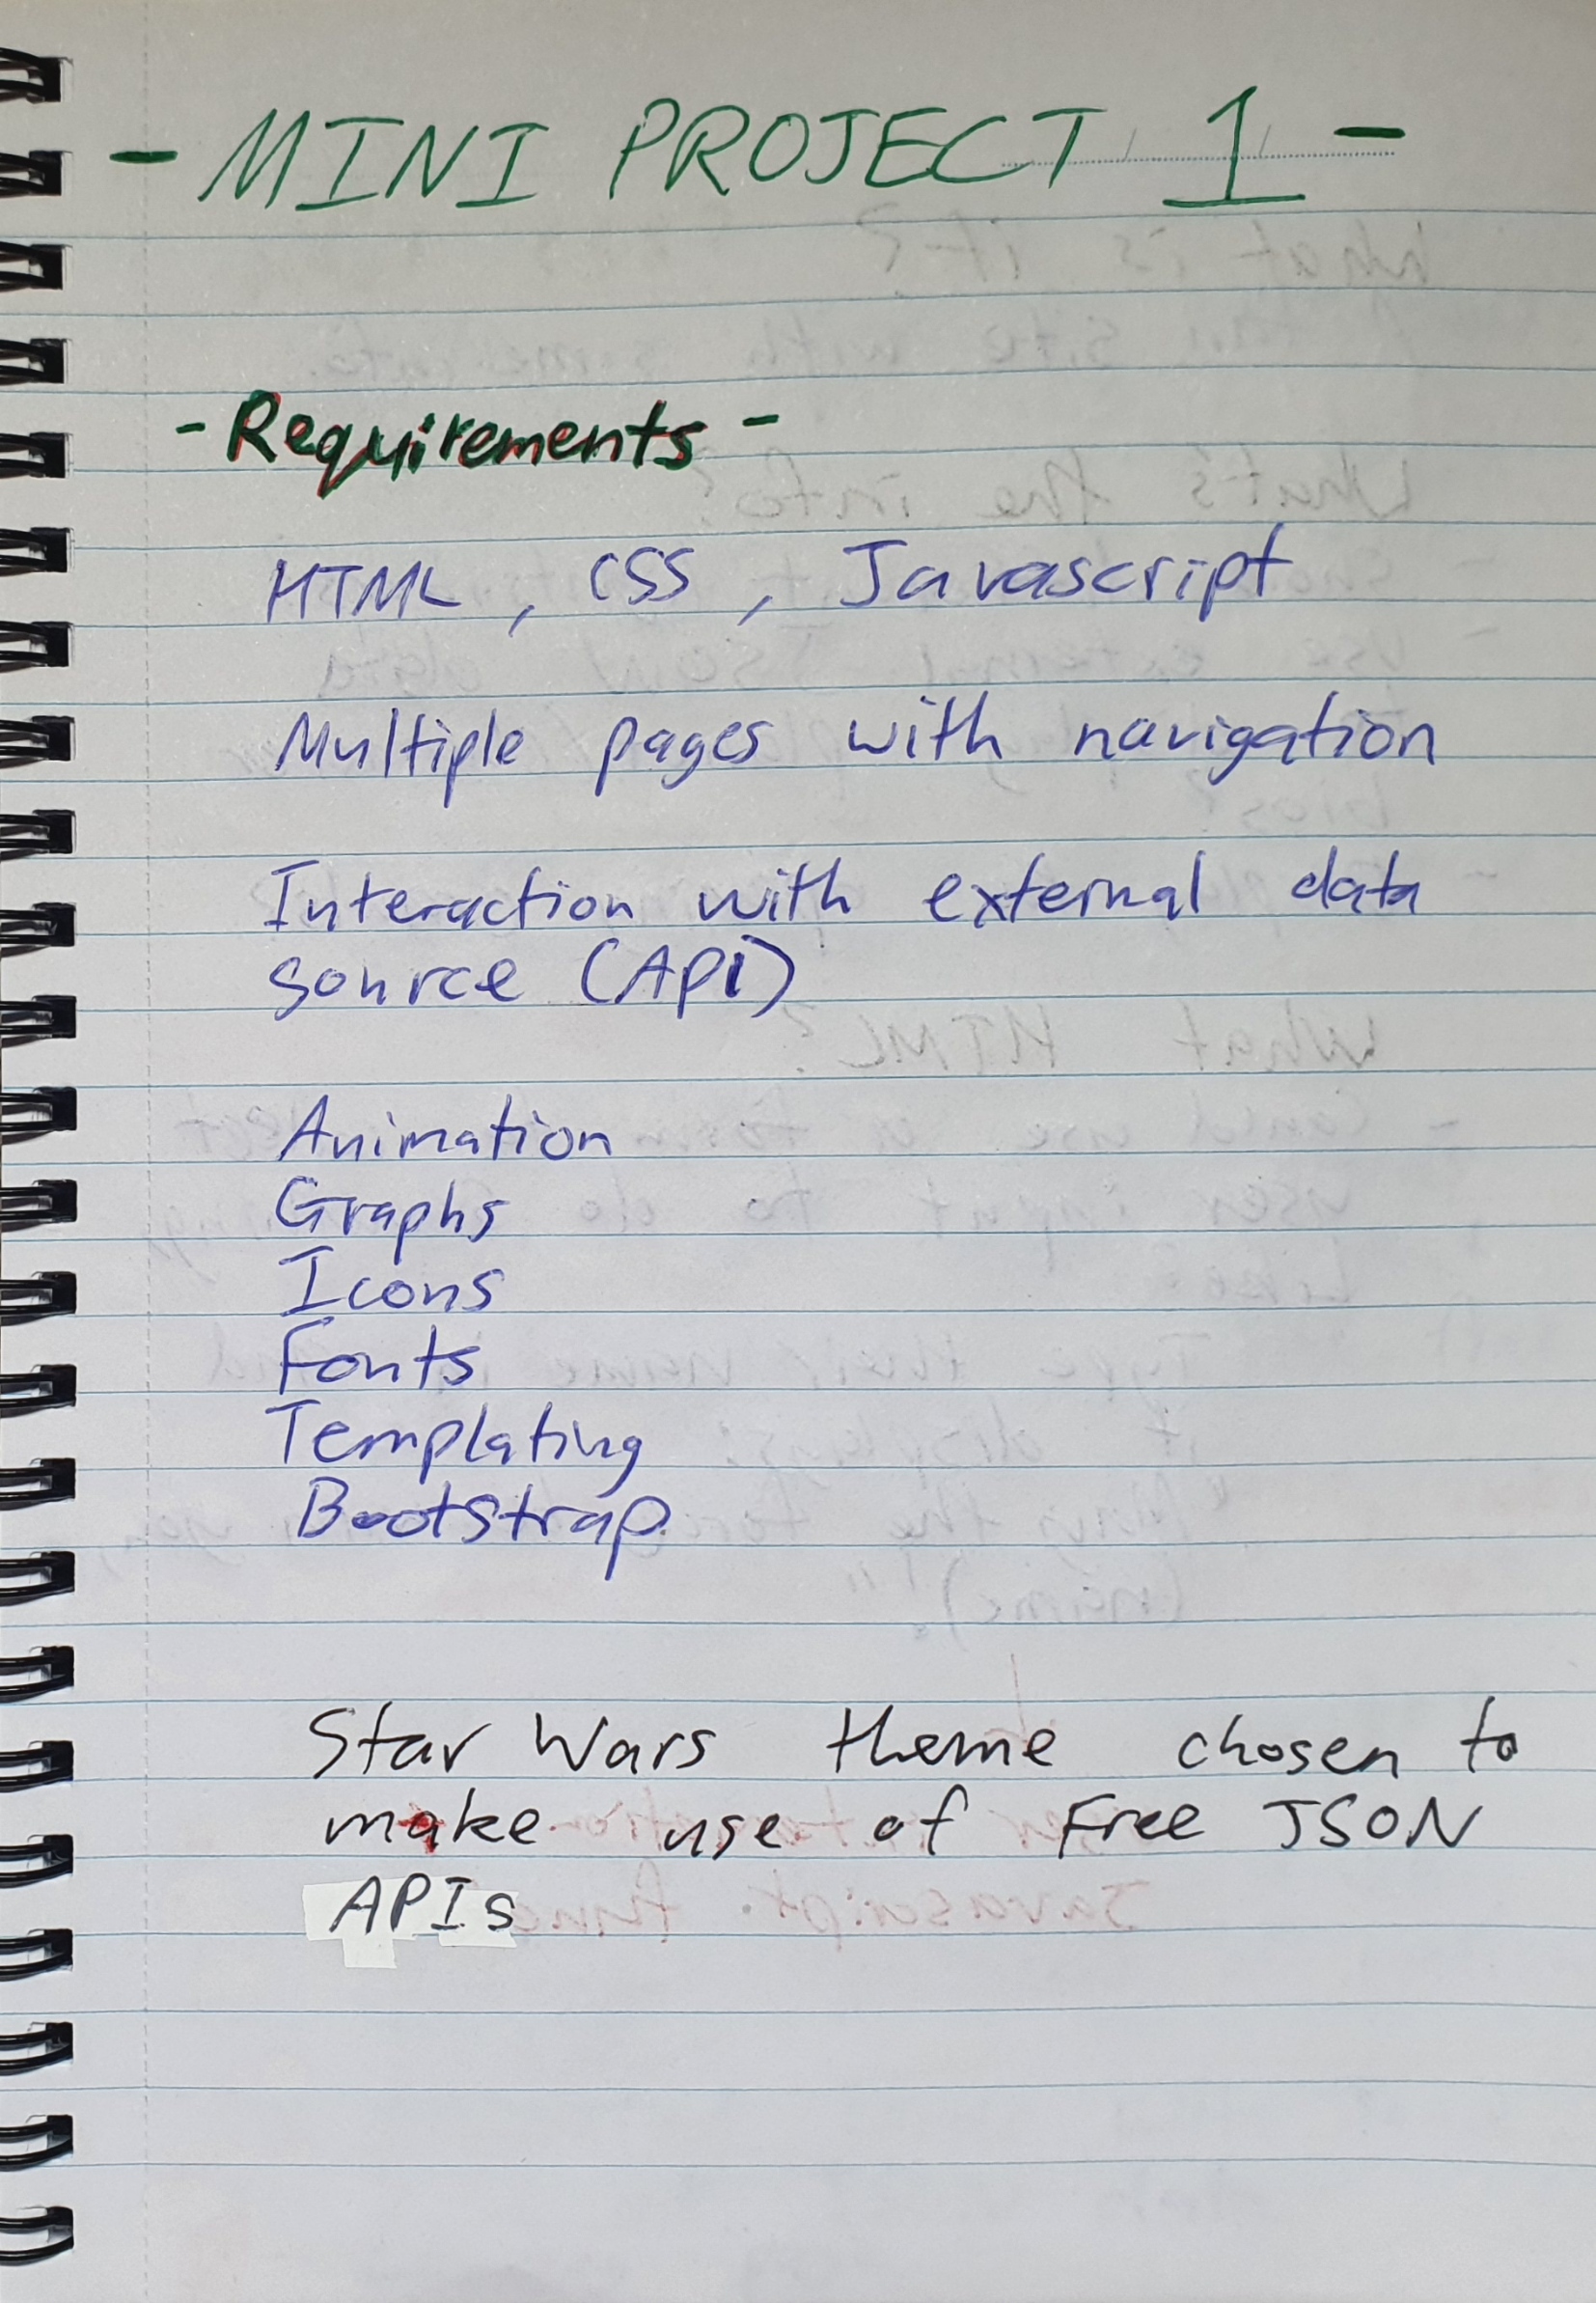 - MINI PROJECT 1 -
- Requirements -
HTML, CSS, Javascript
Multiple pages with navigation
Interaction with external data
source (APi)
Animation
Graphs
Icons
Fonts
Templating
Bootstrap
Star Wars theme chosen to
make use of free JSON
APIs